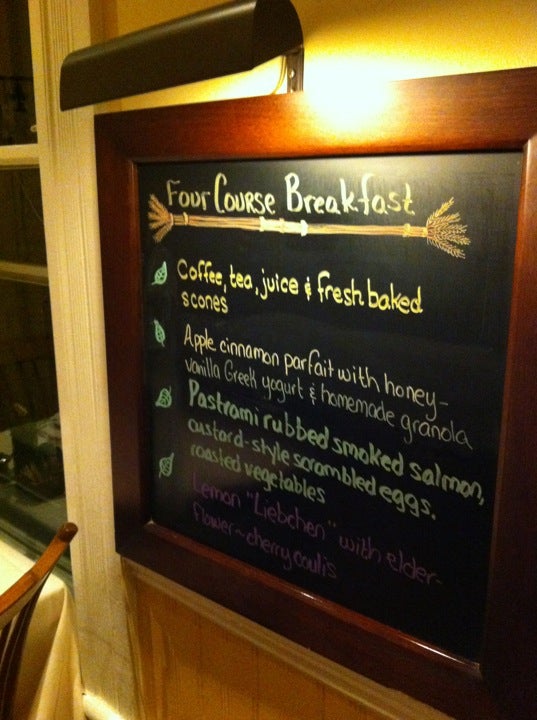 Four Course Breakfast
Coffee, tea, juice & fresh baked
scones
Apple cinnamon parfait with honey-
vanilla Greek yogurt & homemade granola
Pastrami rubbed smoked salmon,
custard-style scrambled eggs.
roasted vegetables
Lemon "Liebchen" with elder-
flower-cherry coulis